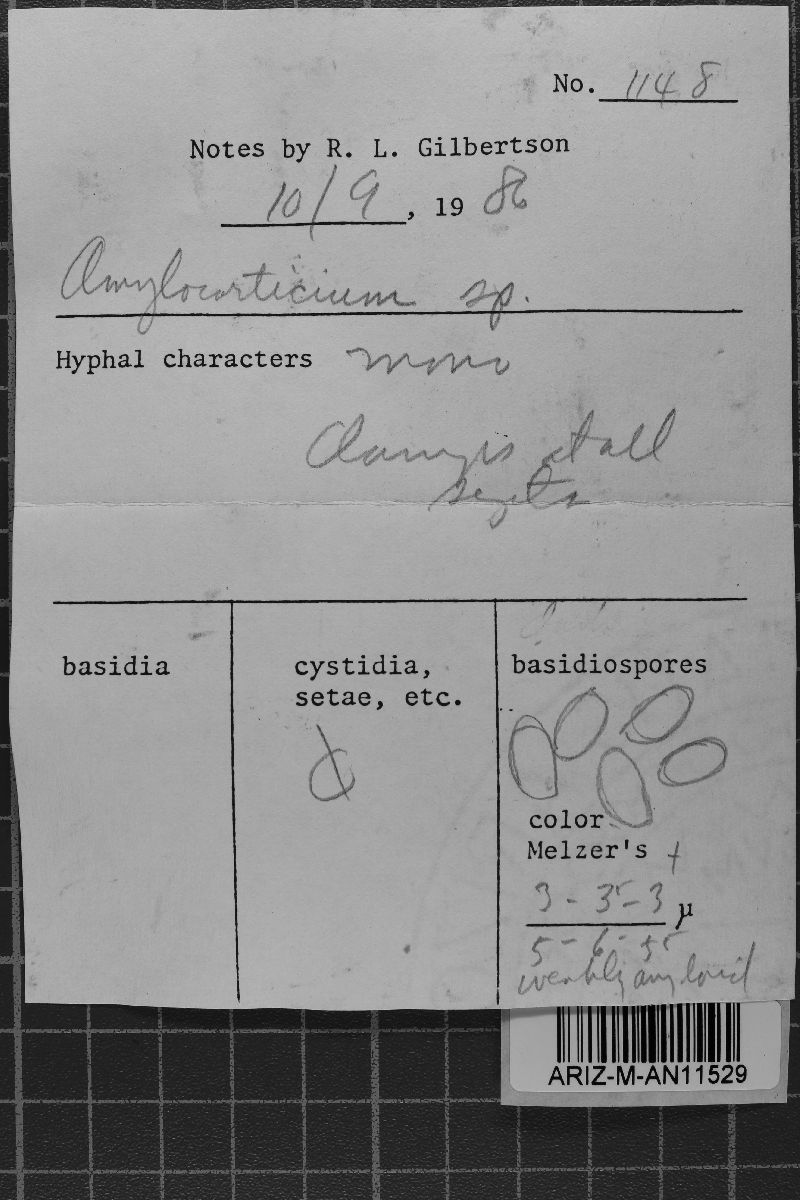 No. 1148
Notes by R. L. Gilbertson
10/9, 19 86
Amylocorticium sp.
Hyphal characters mono
Clamps at all
septa
basidia
cystidia,
setae, etc.
basidiospores
color
Melzer's +
3 - 3⁵ - 3 µ
5 - 6 - 5⁵
weakly amyloid
ARIZ-M-AN11529